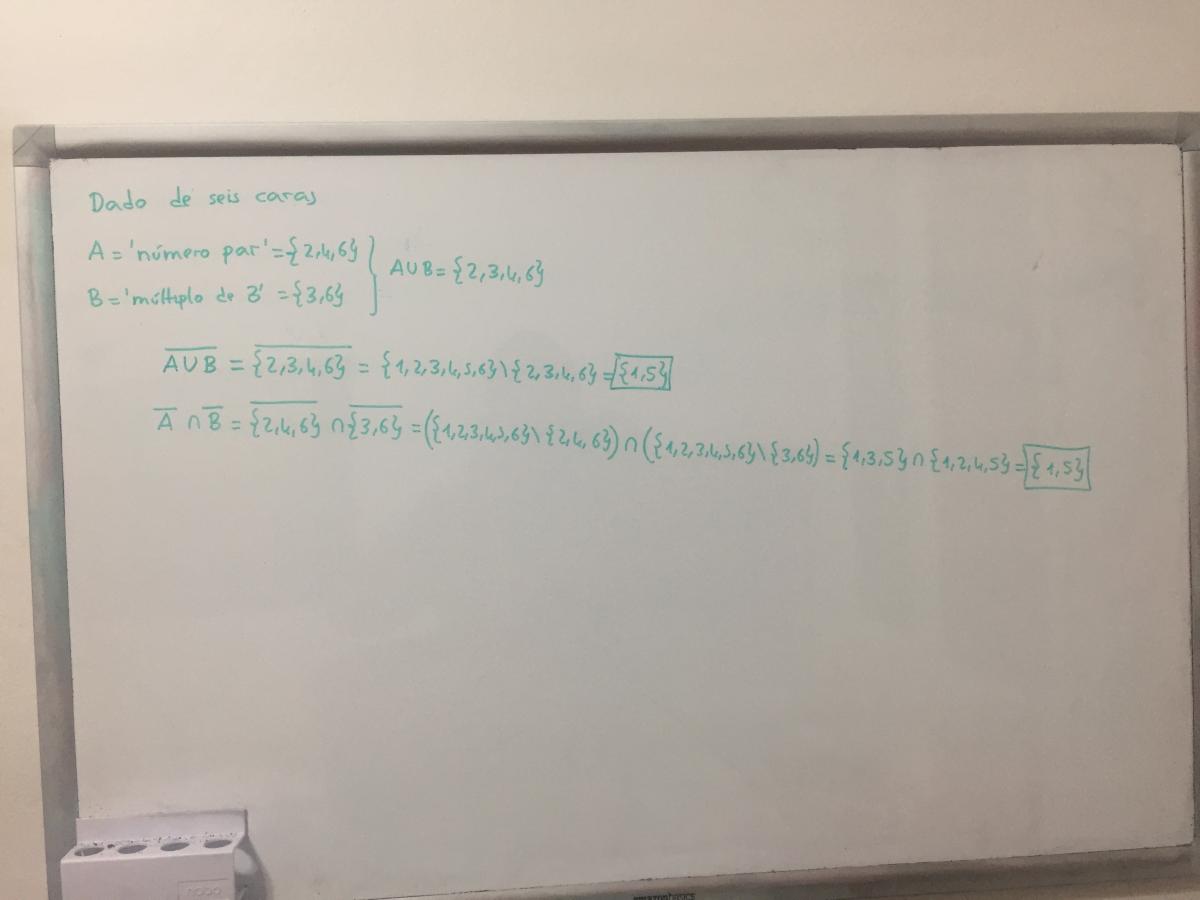 Dado de seis caras
A = 'número par' = {2,4,6}
B = 'múltiplo de 3' = {3,6}
A∪B = {2,3,4,6}
\overline{A∪B} = \overline{{2,3,4,6}} = {1,2,3,4,5,6}\{2,3,4,6} = {1,5}
\overline{A} ∩ \overline{B} = \overline{{2,4,6}} ∩ \overline{{3,6}} = ({1,2,3,4,5,6}\{2,4,6}) ∩ ({1,2,3,4,5,6}\{3,6}) = {1,3,5} ∩ {1,2,4,5} = {1,5}
nobo
amazonbasics